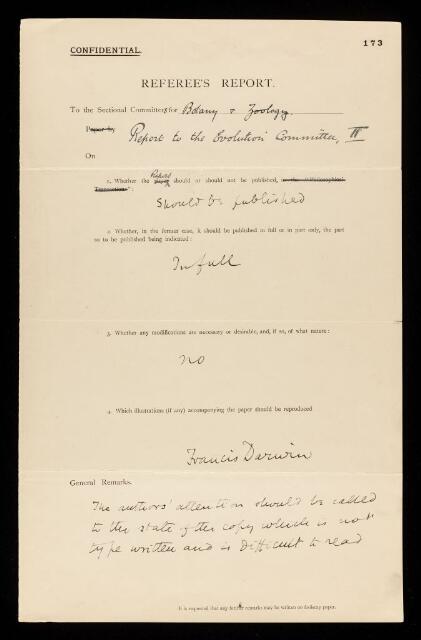 173
CONFIDENTIAL.
REFEREE'S REPORT.
To the Sectional Committees for Botany & Zoology.
Paper by Report to the Evolution Committee, IV
On
1. Whether the Report paper should or should not be published, in the "Philosophical
Transactions":
Should be published
2. Whether, in the former case, it should be published in full or in part only, the part
so to be published being indicated:
In full
3. Whether any modifications are necessary or desirable, and, if so, of what nature:
no
4. Which illustrations (if any) accompanying the paper should be reproduced
Francis Darwin
General Remarks.
The authors' attention should be called
to the state of the copy which is not
type written and is difficult to read
It is requested that any further remarks may be written on foolscap paper.